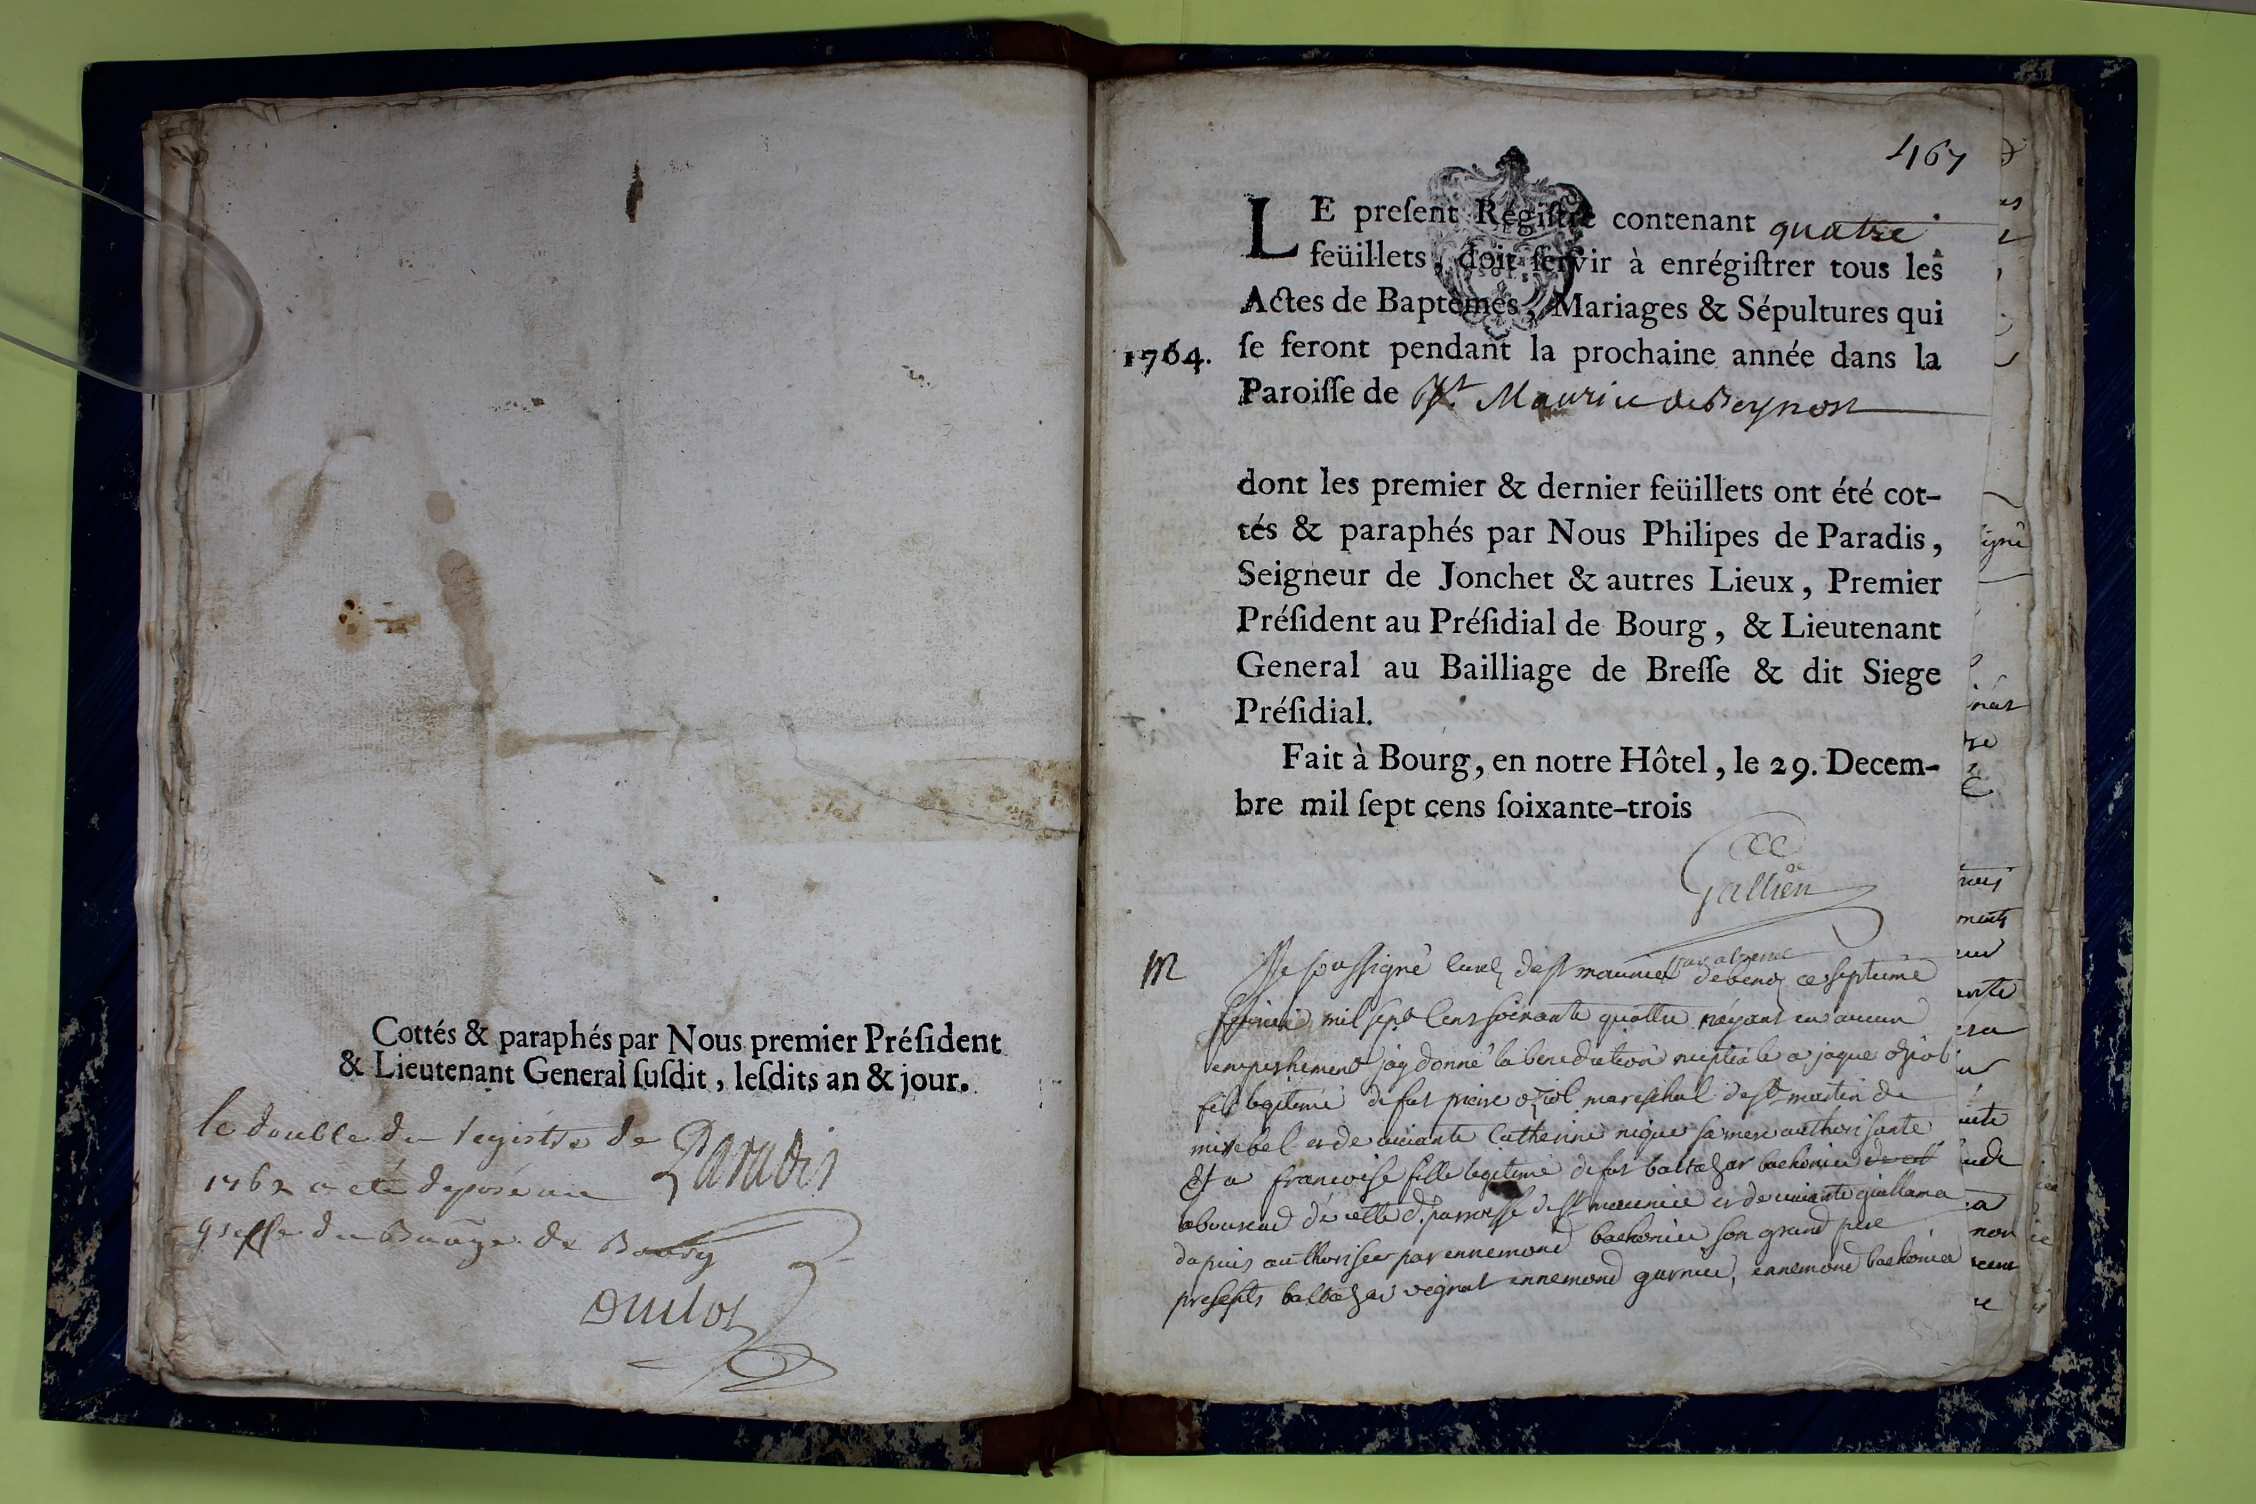 Cottés & paraphés par Nous premier Préſident
& Lieutenant General ſuſdit, leſdits an & jour.
le double du registre de
Paradis
1762 a eté deposé au
greffe du Bauge de Bourg
Duclos
467
LE preſent Régiſtre contenant quatre
feüillets, doit ſervir à enrégiſtrer tous les
Actes de Baptemes, Mariages & Sépultures qui
1764. ſe feront pendant la prochaine année dans la
Paroiſſe de St Maurice de Beynost
dont les premier & dernier feüillets ont été cot-
tés & paraphés par Nous Philipes de Paradis,
Seigneur de Jonchet & autres Lieux, Premier
Préſident au Préſidial de Bourg, & Lieutenant
General au Bailliage de Breſſe & dit Siege
Préſidial.
Fait à Bourg, en notre Hôtel, le 29. Decem-
bre mil ſept cens ſoixante-trois
Gallien
M
Je soussigné curé de st maurice ce septieme
mil sept cens soixante quattre n'ayant eu aucun
empeshement j'ay donné la benediction nuptiale a jaque oziol
fils legitime de fut pierre oziol mareschal de st martin de
mirebel et de viuante Catherine nique sa mere authorisante
Et a francoise fille legitime de fut baltazar
de cette d. parroisse de st maurice et de viuante
dapuis authorisee par ennemond son grand pere
presents baltazar vegnat ennemond garnier, ennemond